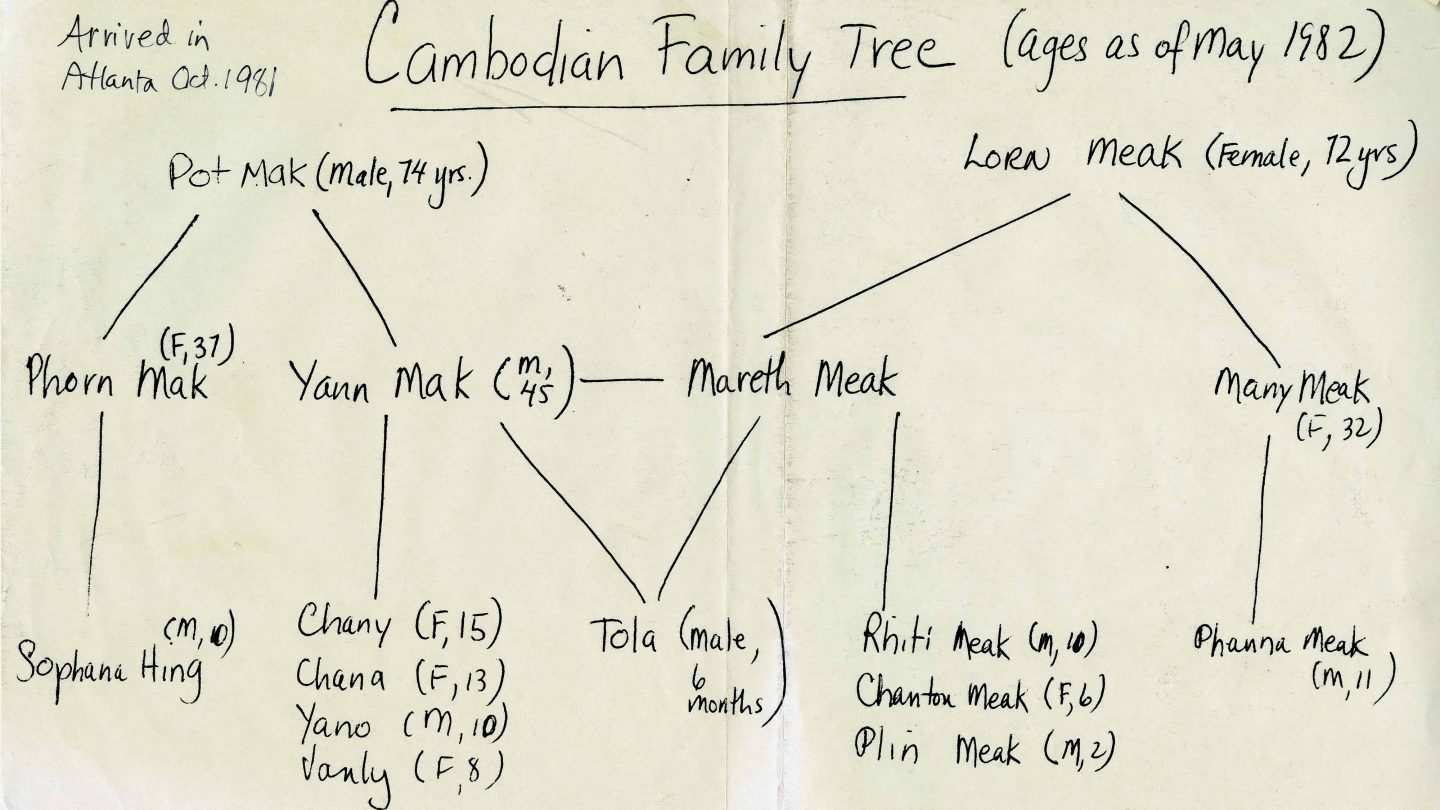 Arrived in
Atlanta Oct. 1981
Cambodian Family Tree (ages as of May 1982)
Pot Mak (Male, 74 yrs.)
Lorn Meak (Female, 72 yrs)
Phorn Mak (F, 37)
Yann Mak (m, 45)
Mareth Meak
Many Meak
(F, 32)
Sophana Hing (M, 10)
Chany (F, 15)
Chana (F, 13)
Yano (M, 10)
Vanly (F, 8)
Tola (male,
6
months)
Rhiti Meak (m, 10)
Chanton Meak (F, 6)
Plin Meak (M, 2)
Phanna Meak
(M, 11)